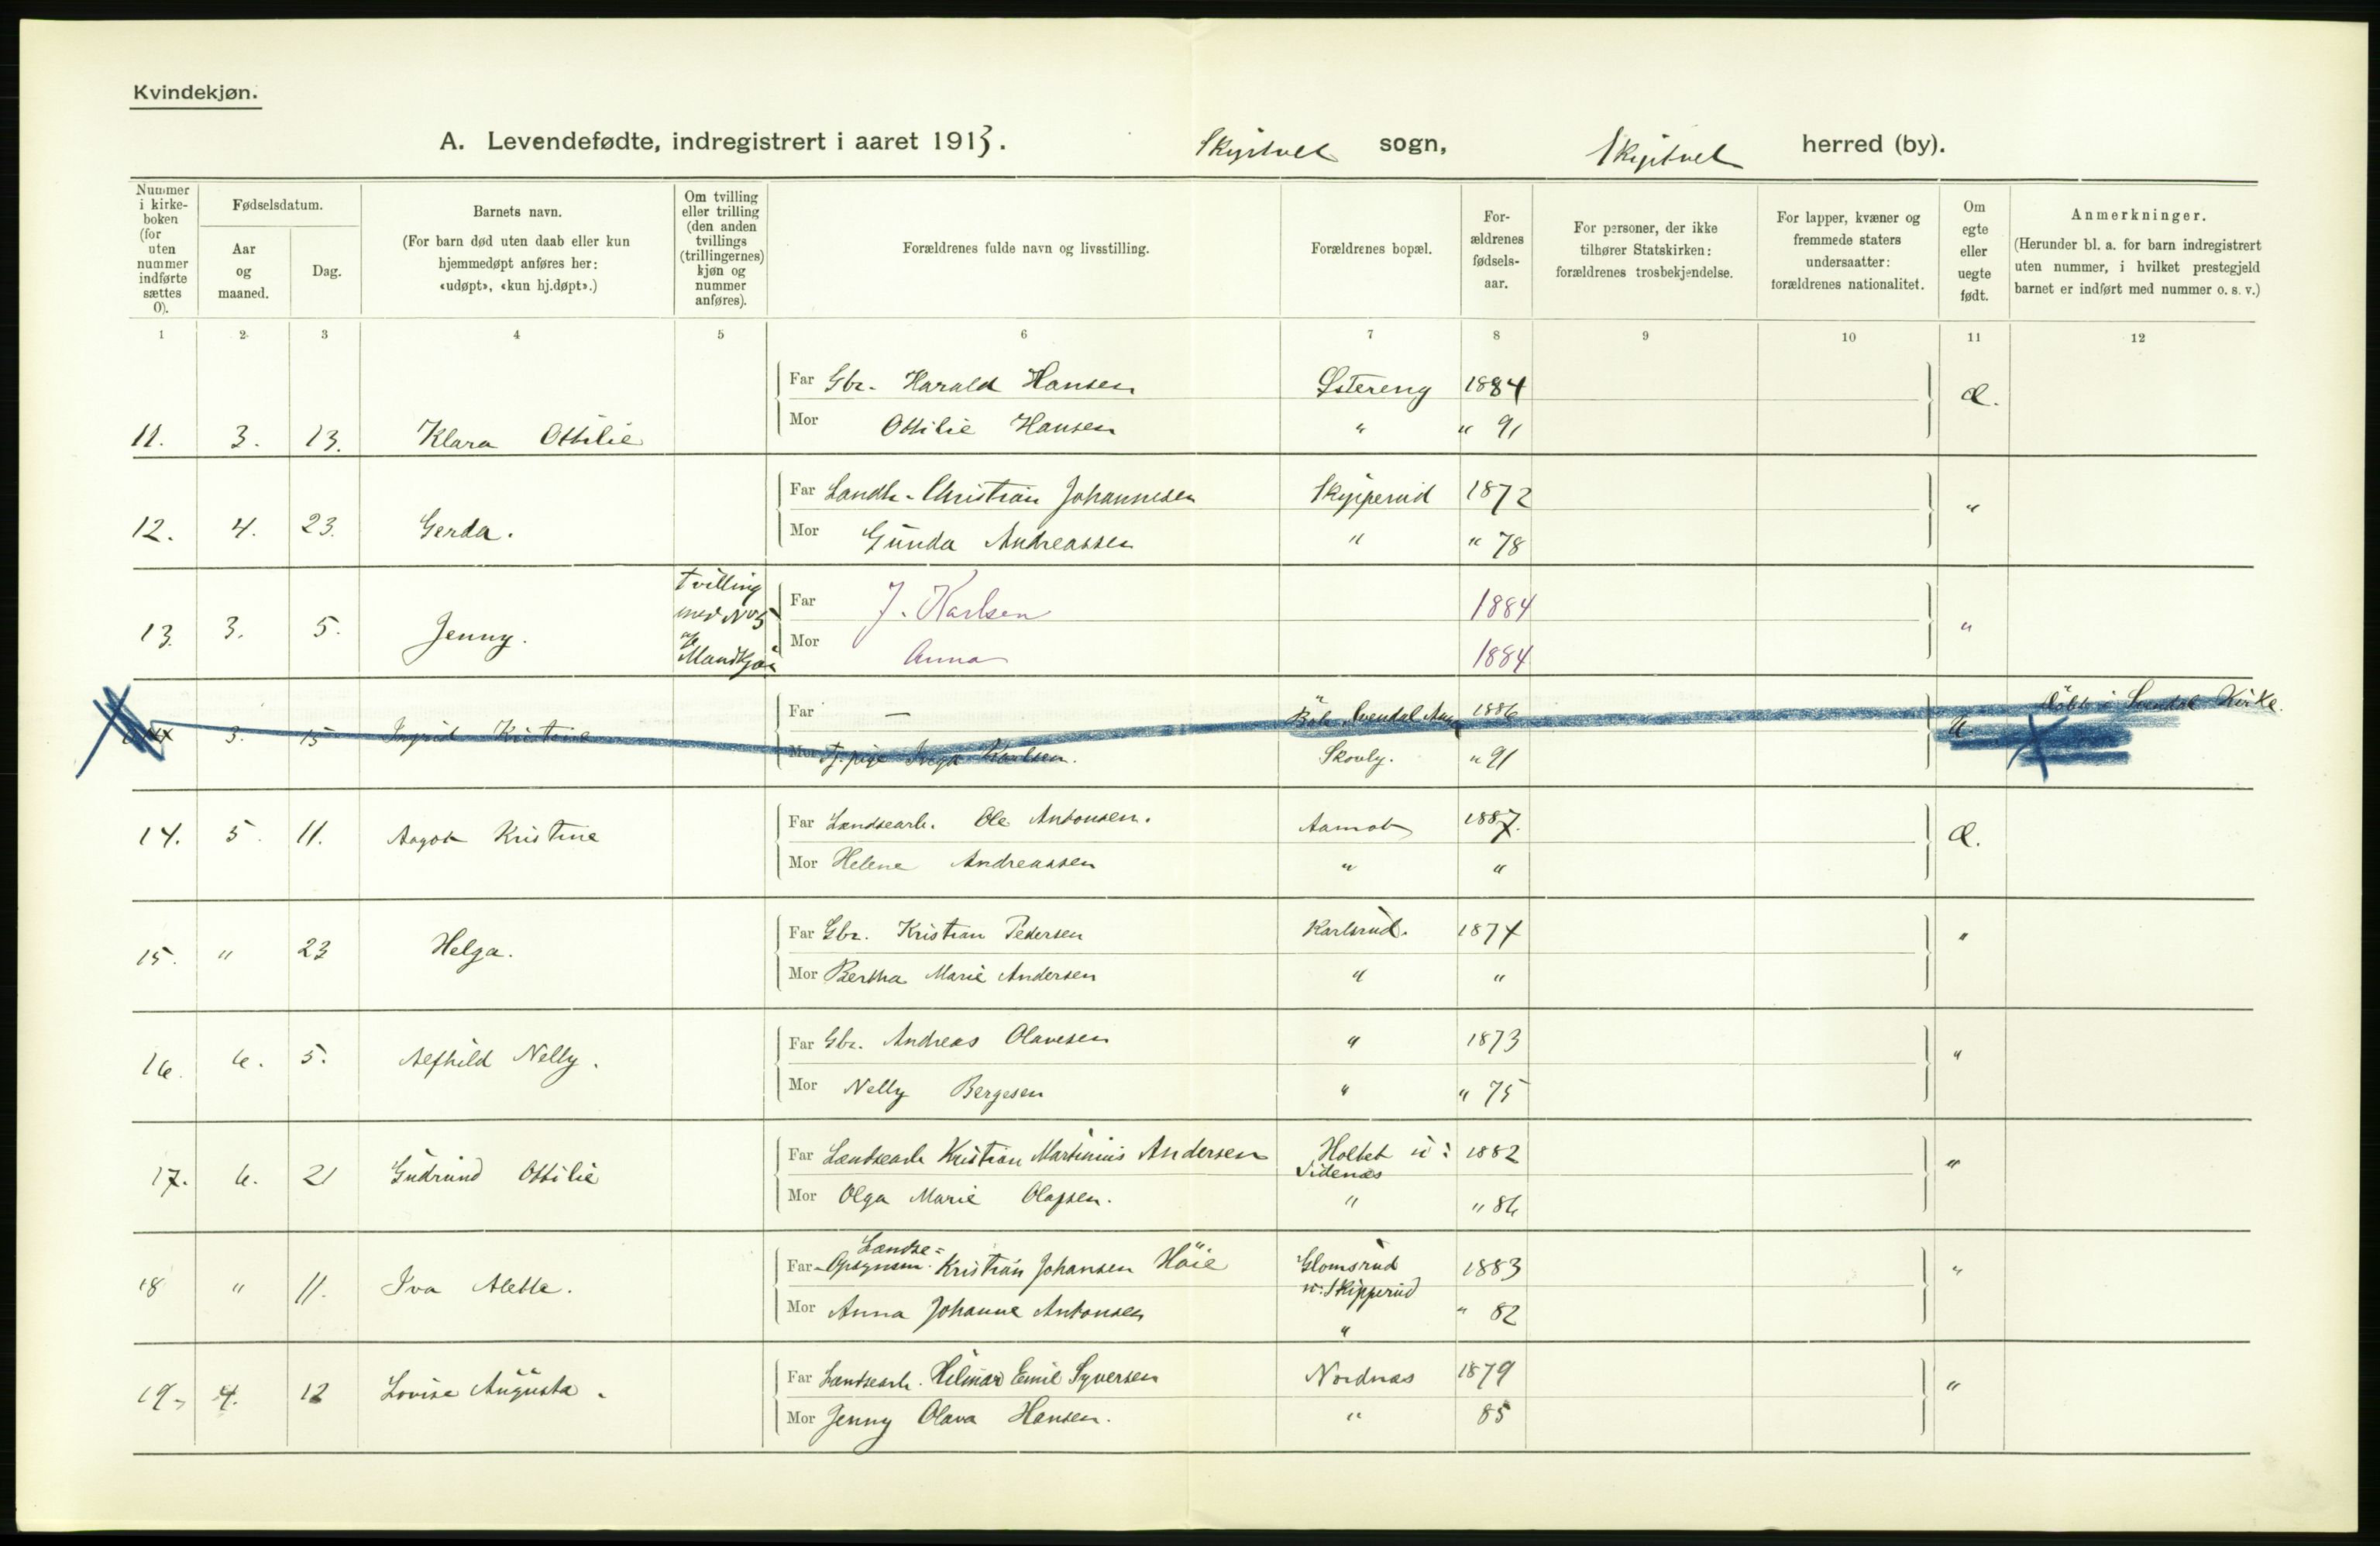 Kvindekjøn.
A. Levendefødte, indregistrert i aaret 1913. Skiptvet sogn, Skiptvet herred (by).
Nummer i kirkeboken (for uten nummer indførte sættes 0).
Fødselsdatum.
Aar og maaned.
Dag.
Barnets navn.
(For barn død uten daab eller kun hjemmedøpt anføres her: «udøpt», «kun hj.døpt».)
Om tvilling eller trilling (den anden tvillings (trillingernes) kjøn og nummer anføres).
Forældrenes fulde navn og livsstilling.
Forældrenes bopæl.
Forældrenes fødselsaar.
For personer, der ikke tilhører Statskirken: forældrenes trosbekjendelse.
For lapper, kvæner og fremmede staters undersaatter: forældrenes nationalitet.
Om egte eller uegte født.
Anmerkninger.
(Herunder bl. a. for barn indregistrert uten nummer, i hvilket prestegjeld barnet er indført med nummer o. s. v.)
1 2 3 4 5 6 7 8 9 10 11 12
Far Gbr. Harald Hansen Østereng 1884 Æ.
11. 3. 13. Klara Ottilie Mor Ottilie Hansen " " 91
Far Landh. Christian Johannesen Skipperud 1872 "
12. 4. 23. Gerda. Mor Gunda Andreassen " " 78
tvilling med No 5 af Mandkjøn
Far J. Karlsen 1884 "
13. 3. 5. Jenny. Mor Anna 1884
Far — 1886 U. Döbt i Kirke.
3. 15 Ingrid Kristine Mor Tj. pige Inga Karlsen. Skovly. " 91
Far Landsearb. Ole Antonsen. Aamot 1887. Æ.
14. 5. 11. Aagot Kristine Mor Helene Andreassen " "
Far Gbr. Kristian Pedersen Karlsrud. 1874 "
15. " 23 Helga. Mor Bertha Marie Andersen " "
Far Gbr. Andreas Olavesen " 1873 "
16. 6. 5. Alfhild Nelly. Mor Nelly Bergesen " " 75
Far Landsearb Kristian Martinius Andersen Holtet u: Videnæs 1882 "
17. 6. 21 Gudrund Ottilie Mor Olga Marie Olafsen. " " 86
Landse=
Far Opsynsm. Kristian Johansen Höie Glomsrud u. Skipperud 1883 "
18 " 11. Iva Alette. Mor Anna Johanne Antonsen " " 82
Far Landsearb. Hilmar Emil Syversen Nordnæs 1879 "
19. 4. 12 Lovise Augusta. Mor Jenny Olava Hansen. " 85